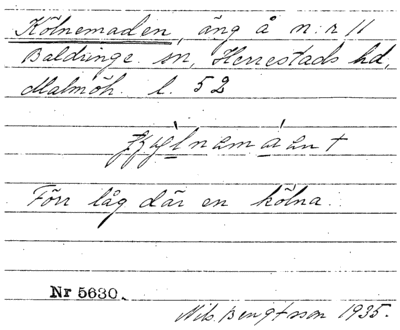 Kölnemaden, äng å n:r 11
Baldringe sn, Herrestads hd,
Malmöh. l. 52
Förr låg där en kölna.
Nr 5630.
Nils Bengtsson 1935.